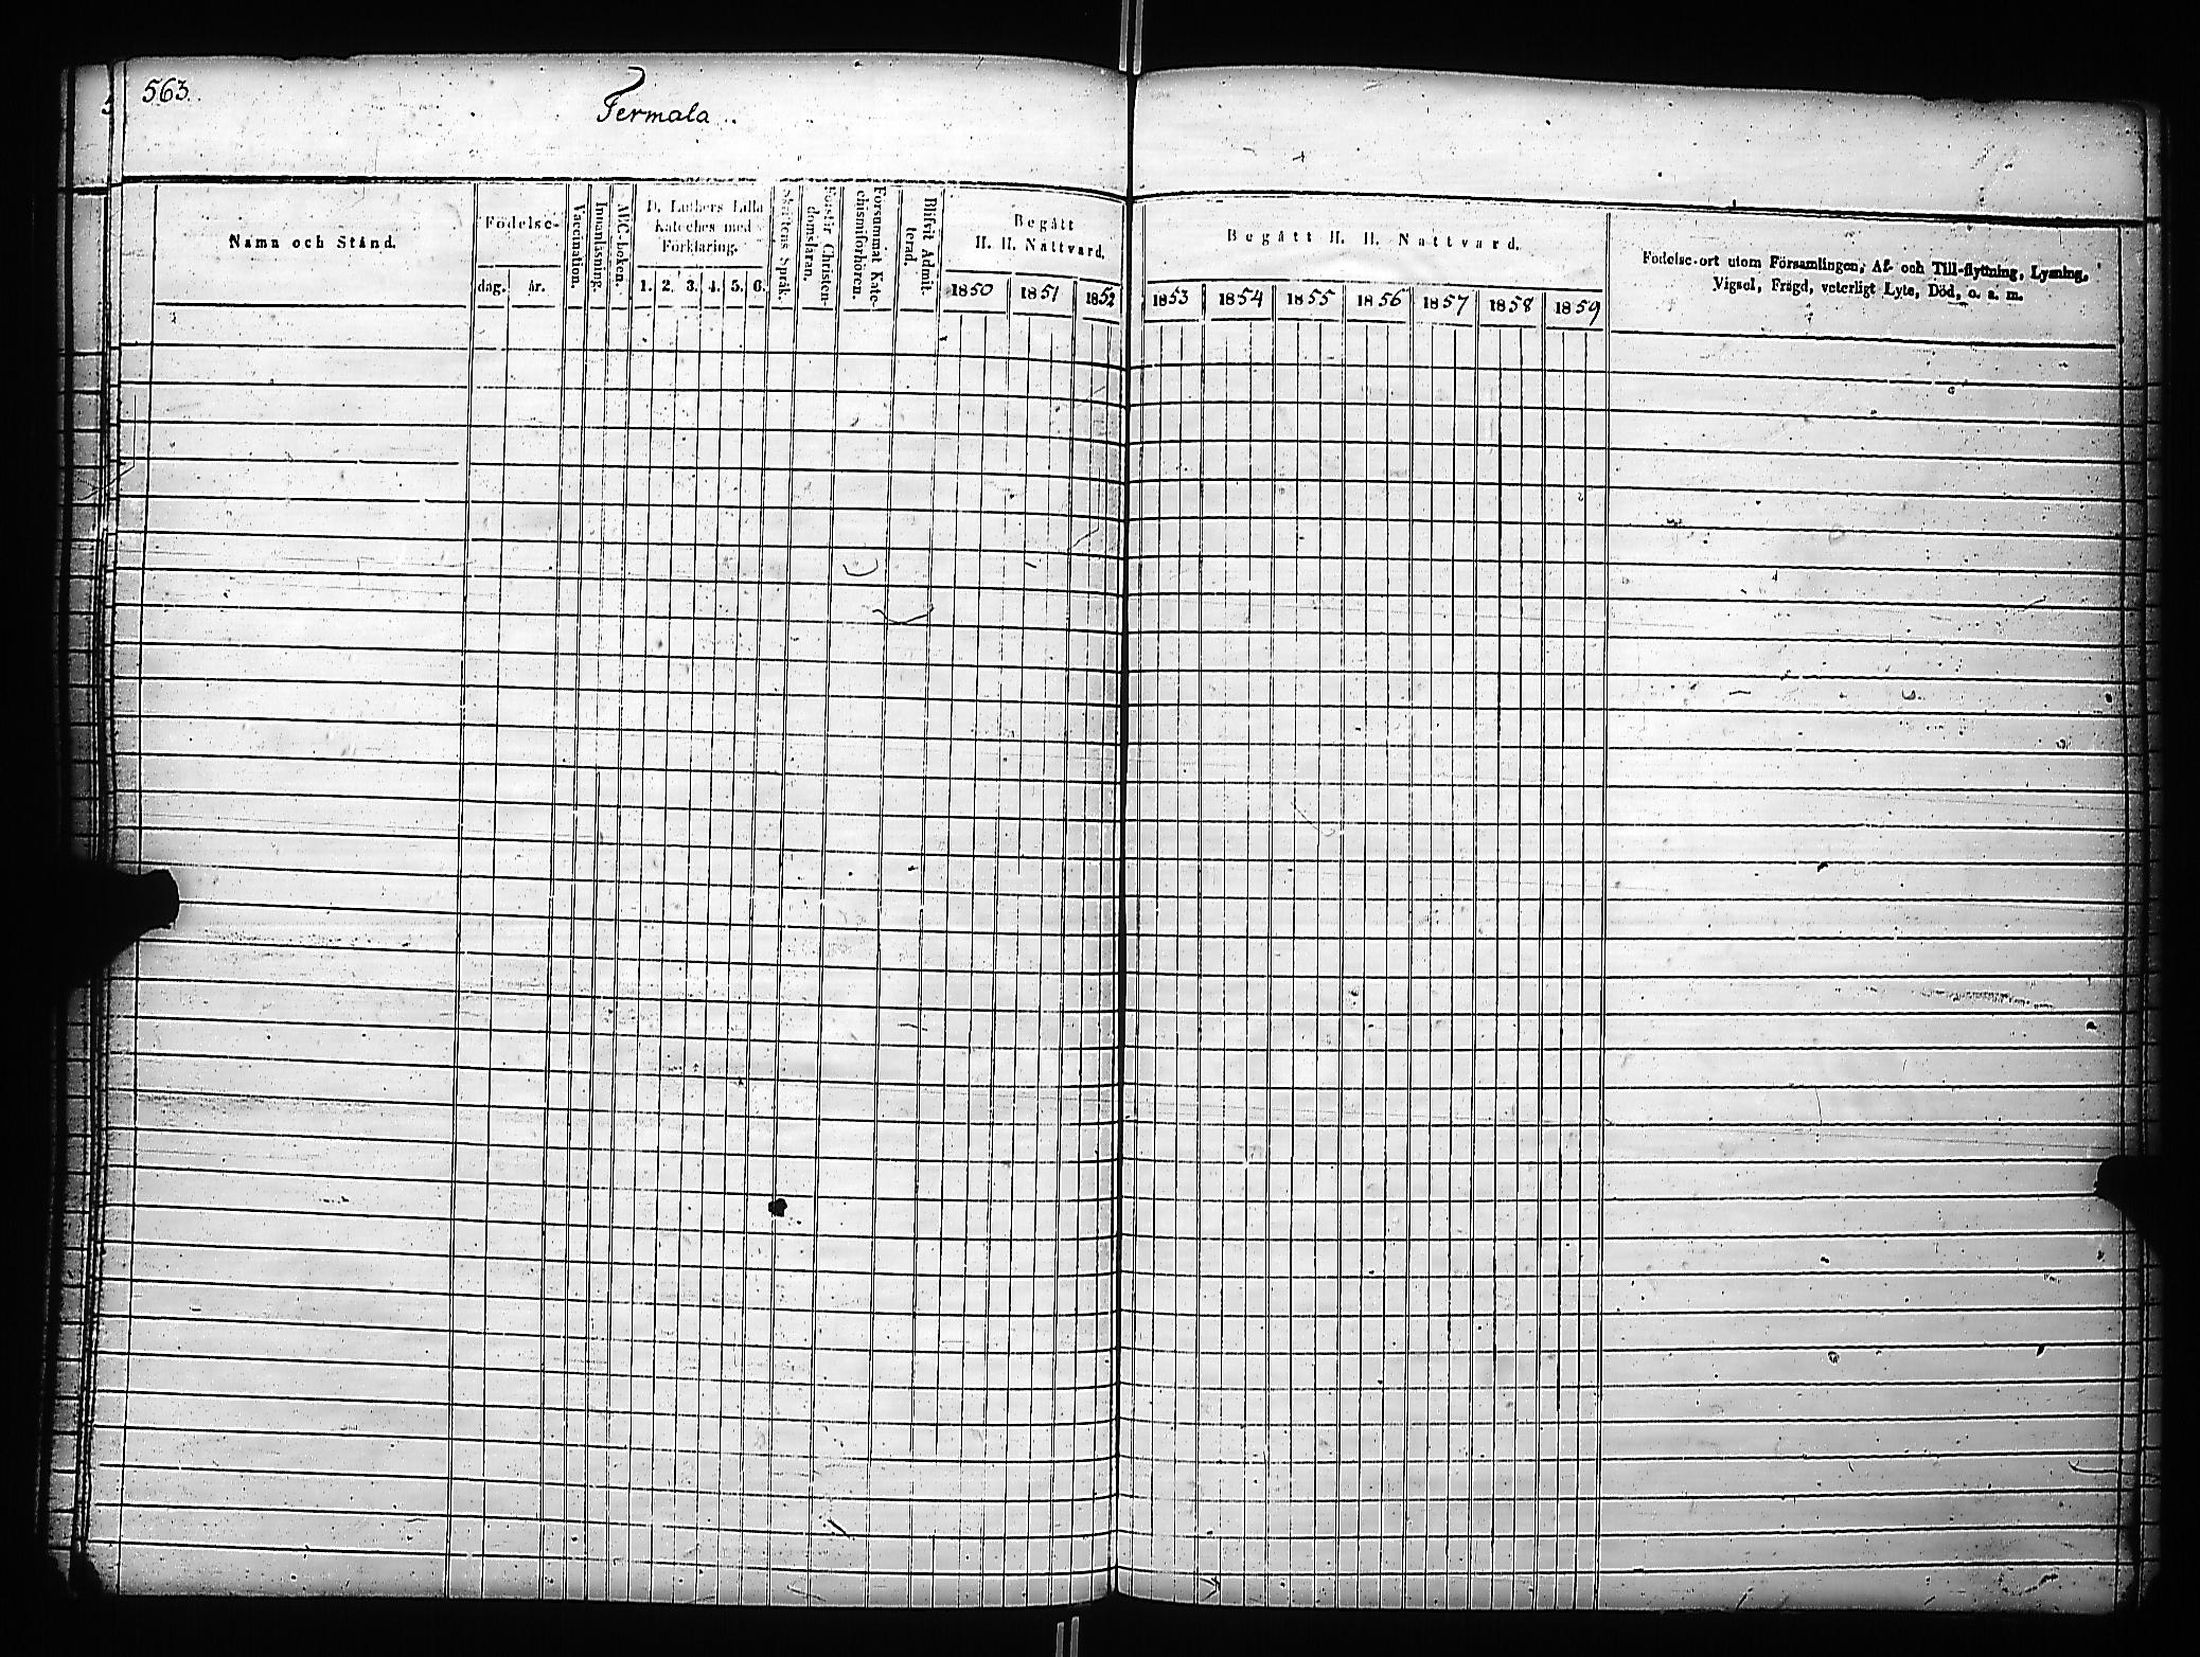 563.
Fermala
Namn och Stånd.
Födelse-
dag.
år.
Vaccination.
Innanläsning.
ABC-boken.
D. Luthers Lilla
Kateches med
Förklaring.
1. 2. 3. 4. 5. 6.
Skriftens Språk.
Förstår Christen-
domsläran.
Försummat Kate-
chismiförhören.
Blifvit Admit-
terad.
Begått
H. H. Nattvard.
1850 1851 1852
Begått H. H. Nattvard.
1853 1854 1855 1856 1857 1858 1859
Födelse-ort utom Församlingen, Af- och Till-flyttning, Lysning,
Vigsel, Frägd, veterligt Lyte, Död, o. s. m.